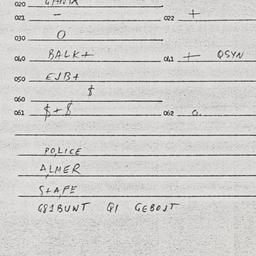 020
021 - 022 +
030 O
040 BALK+ 041 + QSYN
050 EJB+
060 $
061 $+$ 062 0.
POLICE
ALMER
SLAPE
G81BUNT QI GEBOJT